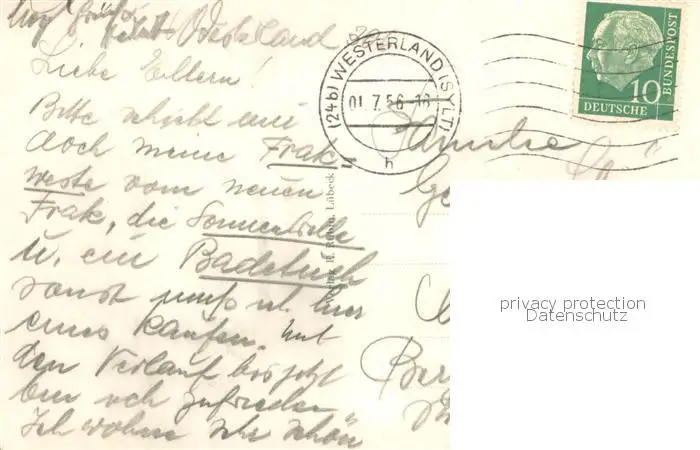 Westerland
Liebe Eltern!
Bitte schickt mir
doch meine Frak
weste vom neuen
Frak, die Sonnenbrille
u. ein Badetuch
sonst muß ich hier
eines kaufen. Mit
den Verlauf bis jetzt
bin ich zufrieden
Ich wohne sehr schön
(24b) WESTERLAND (SYLT)
01.7.56
h
DEUTSCHE BUNDESPOST
10
Familie
Verlag H. Rubin, Lübeck
privacy protection
Datenschutz